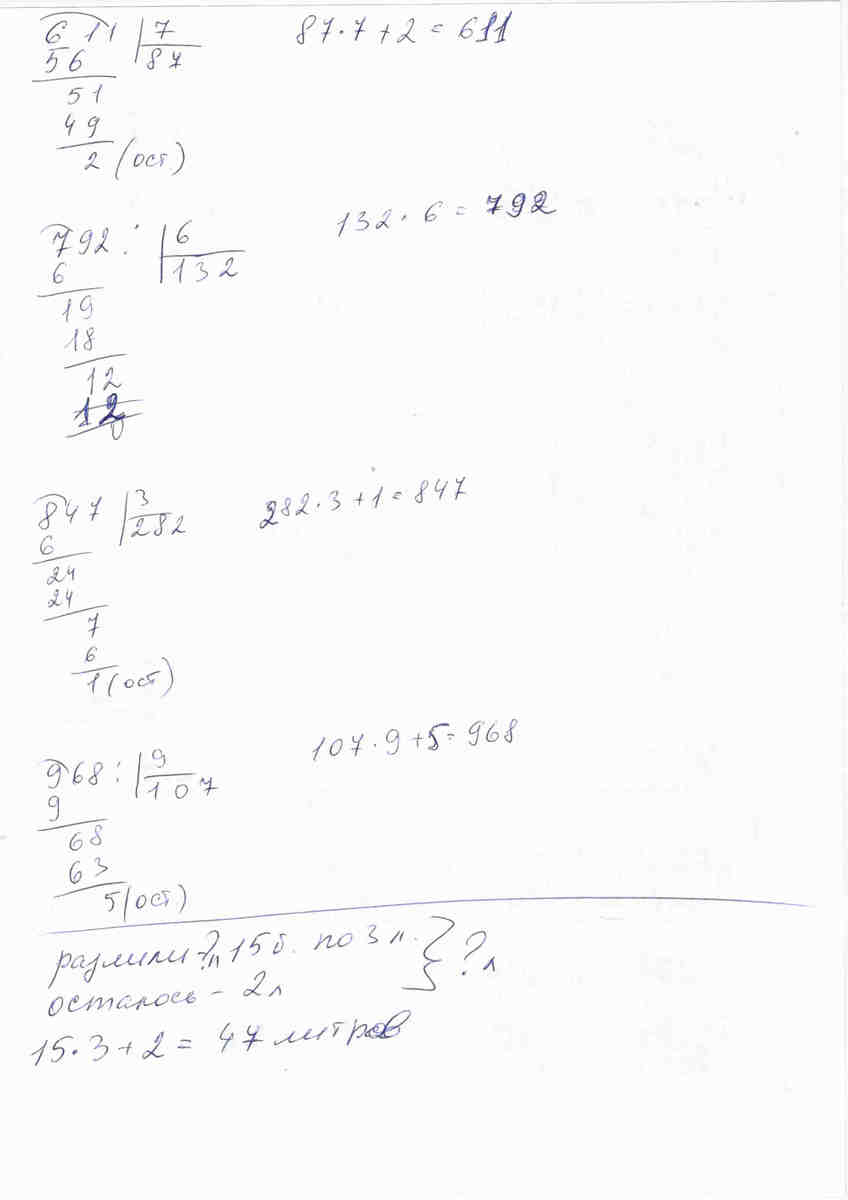 611 7 87·7+2=611
56 87
51
49
2 (ост)
792: 6 132·6=792
6 132
19
18
12
12
0
847 3 282·3+1=847
6 282
24
24
7
6
1 (ост)
968: 9 107·9+5=968
9 107
68
63
5 (ост)
разлили-?л 15б. по 3л. } ?л
осталось - 2л
15·3+2= 47 литров